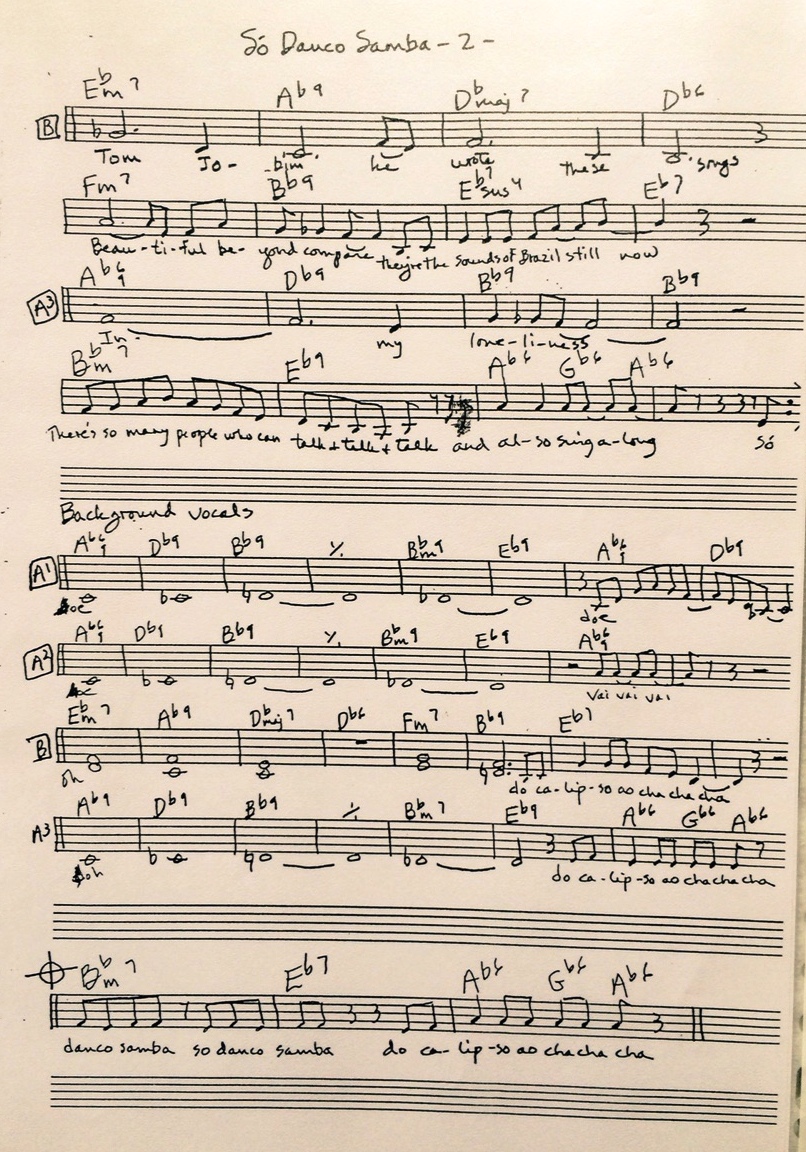 Só Danco Samba - 2 -
Ebm7 Ab9 Dbmaj7 Db6
B
Tom Jo- bim he wrote these songs
Fm7 Bb9 Eb7sus4 Eb7
Beau-ti-ful be-yond compare they're the sounds of Brazil still now
Ab69 Db9 Bb9 Bb9
A3
In my lone-li-ness
Bbm7 Eb9 Ab6 Gb6 Ab6
There's so many people who can talk + talk + talk and al-so sing a-long Só
Background vocals
Ab69 Db9 Bb9 ٪ Bbm9 Eb9 Ab69 Db9
A1
doe
Ab69 Db9 Bb9 ٪ Bbm9 Eb9 Ab69
A2
Vai vai vai
Ebm7 Ab9 Dbmaj7 Db6 Fm7 Bb9 Eb7
B
oh do ca-lip-so ao cha cha cha
Ab9 Db9 Bb9 ٪ Bbm7 Eb9 Ab6 Gb6 Ab6
A3
doh do ca-lip-so ao cha cha cha
Bbm7 Eb7 Ab6 Gb6 Ab6
danco samba so danco samba do ca-lip-so ao cha cha cha